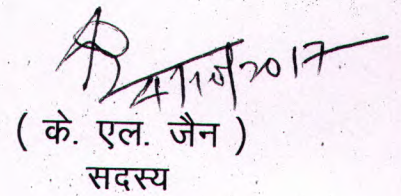 4/10/2017
( के. एल. जैन )
सदस्य